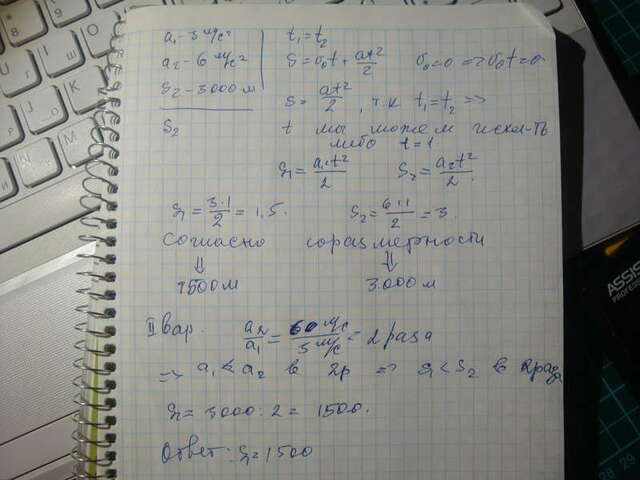 a₁ - 3 м/с²
t₁ = t₂
a₂ - 6 м/с²
S = υ₀t + at²/2 υ₀ = 0 => υ₀t = 0
S₂ - 3000 м
S = at²/2, т.к t₁ = t₂ =>
S₂
t мы можем исклю-ть
либо t = 1
S₁ = a₁t²/2 S₂ = a₂t²/2
S₁ = 3·1/2 = 1,5. S₂ = 6·1/2 = 3
Согласно соразмерности
⇓ ⇓
1500 м 3000 м
II вар. a₂/a₁ = 60 м/с / 5 м/с = 2 раза
=> a₁ < a₂ в 2р => S₁ < S₂ в 2 раза
S₁ = 3000 : 2 = 1500.
Ответ: S₁ = 1500
ASSIS
PROFESS